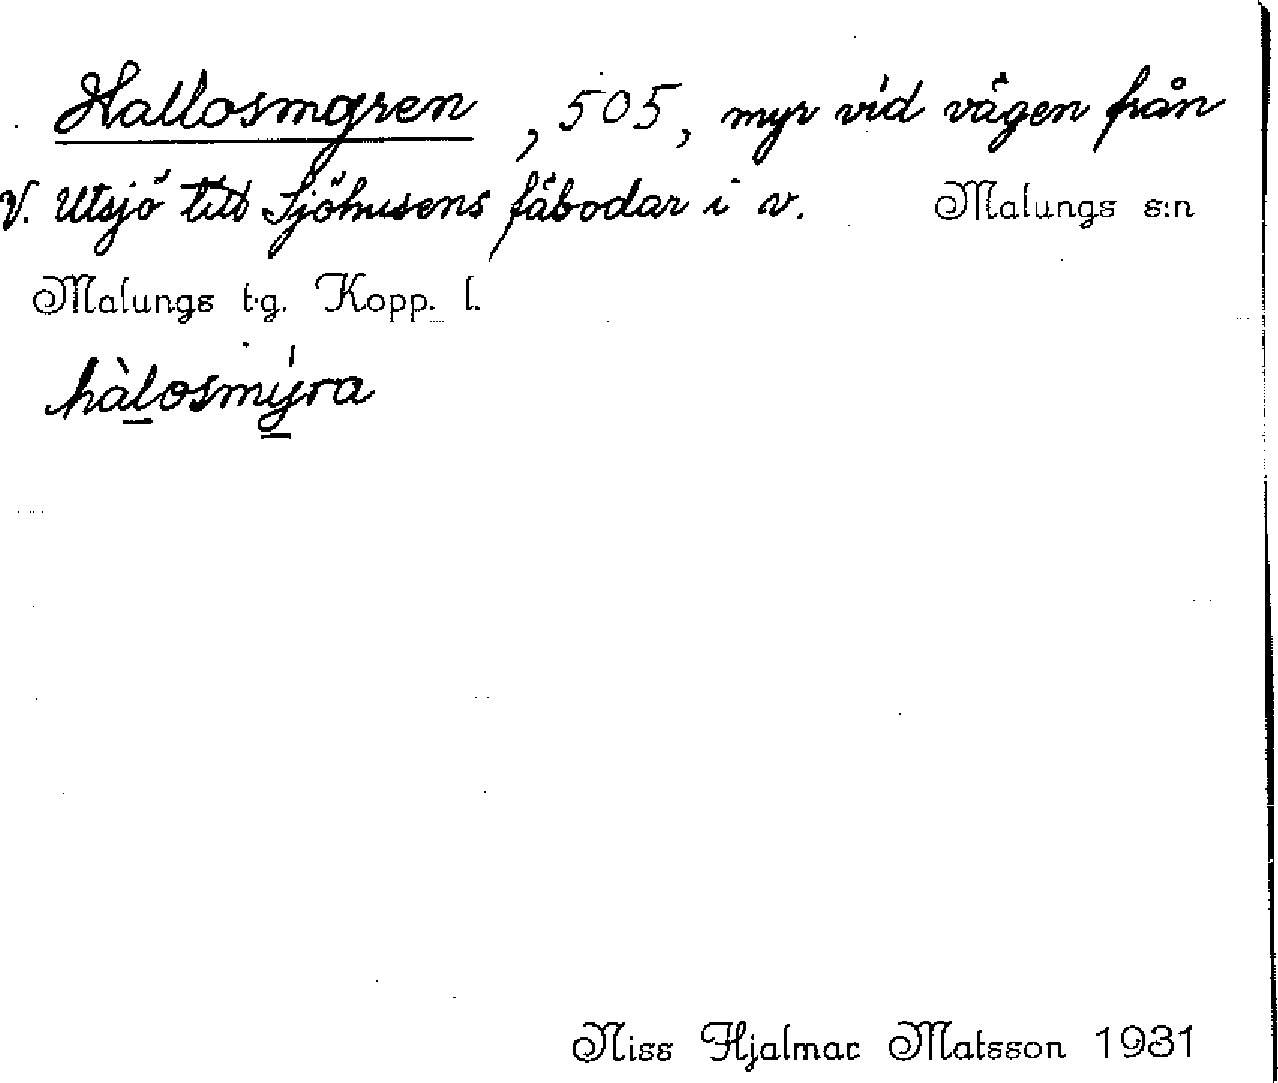 Hallosmyren, 505, myr vid vägen från
V. Utsjö till Sjöhusens fäbodar i v. Malungs s:n
Malungs t.g. Kopp. l.
hàlosmýra
Niss Hjalmar Matsson 1931